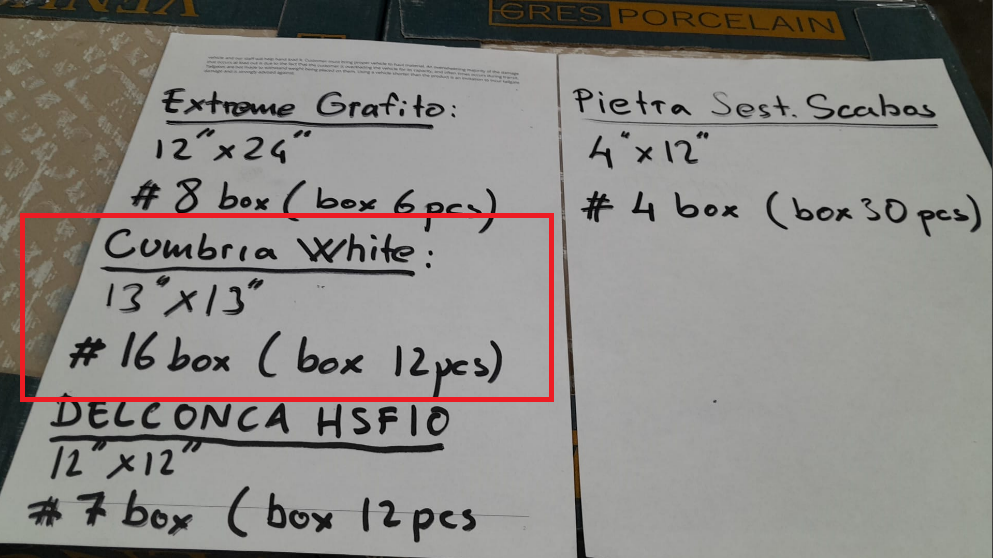 GRES PORCELAIN
Extreme Grafito:
12"x24"
# 8 box (box 6 pcs)
Cumbria White:
13"x13"
# 16 box (box 12 pcs)
DELCONCA HSF10
12"x12"
# 7 box (box 12 pcs
Pietra Sest. Scabas
4"x12"
# 4 box (box 30 pcs)